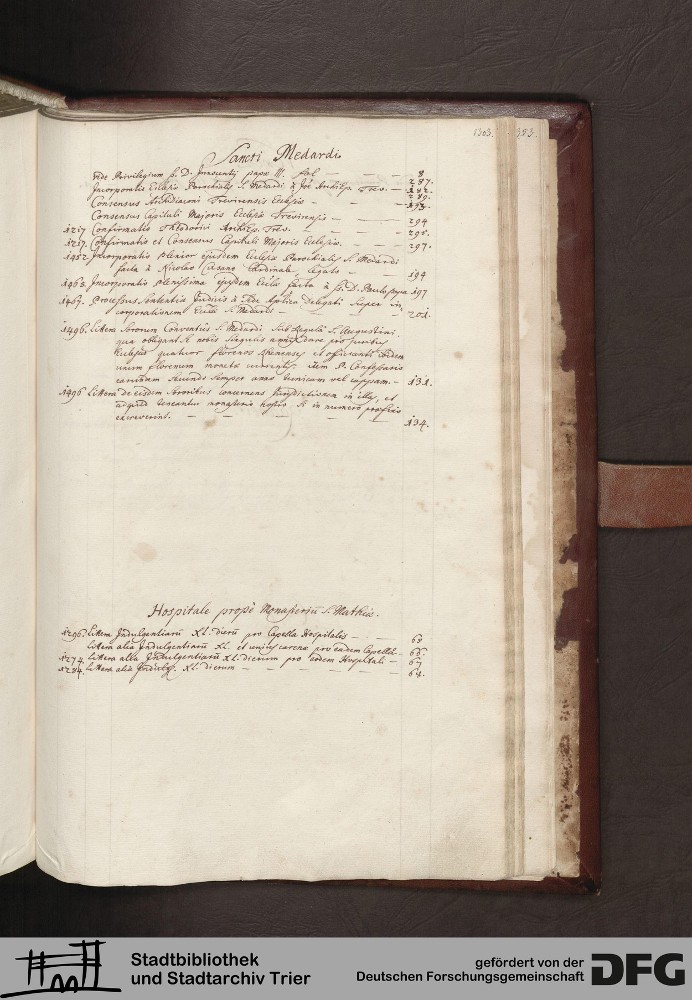 1303. 353.
Sancti Medardi
Vide Privilegium S. D. Innocentij papae III. fol — — — 8
Incorporatio Ecclesiae Parochialis S. Medardi à Joē Archiepo Trev. — 287.
Consensus Archidiaconi Trevirensis Ecclesiae — — 289.
Consensus Capituli Majoris Ecclesiae Trevirensis — — 294
1217 Confirmatio Theodorici Archiep. Trev. — — — 295.
1217. Confirmatio et Consensus Capituli Majoris Ecclesiae. — — 297.
1452 Incorporatio plenior ejusdem Ecclesiae Parochialis S. Medardi
facta à Nicolao Cusano Cardinale, legato — — 194
Incorporatio plenissima ejusdem Ecclae facta à S. D. Paulo papa 197
1467. Processus sententia Judicis à Sede Aplica Delegati super in
corporationem Ecclae S. Medardi — 201.
1496. Littera Sororum Conventûs S. Medardi sub Regula S. Augustini,
qua obligant se nobis singulis annis dare pro juribus
Ecclesiae quatuor florenos Rhenenses et officianti ibidem
unum florenum moneta currentis item P. Confessario
earundem secundo semper anno tunicam vel cappam. — 131.
1496 Littera de eisdem Sororibus concernens Jurisdictionem in illas, et
ad quid teneantur monasterio nostro, si in numero praefixo
excreverint. — — — — — — 134.
Hospitale propè Monasteriū S. Mathiae.
1296. Littera Indulgentiarū XL. dierū pro Capella Hospitalis — — 60
Littera alia Indulgentiarū XL. et unius carenae pro eadem Capella — 66.
1274. Littera alia Indulgentiarū XL. dierum pro eodem Hospitali — 67
1284. Littera alia Indulg. XL. dierum — — — — — 64.
Stadtbibliothek
und Stadtarchiv Trier
gefördert von der
Deutschen Forschungsgemeinschaft
DFG